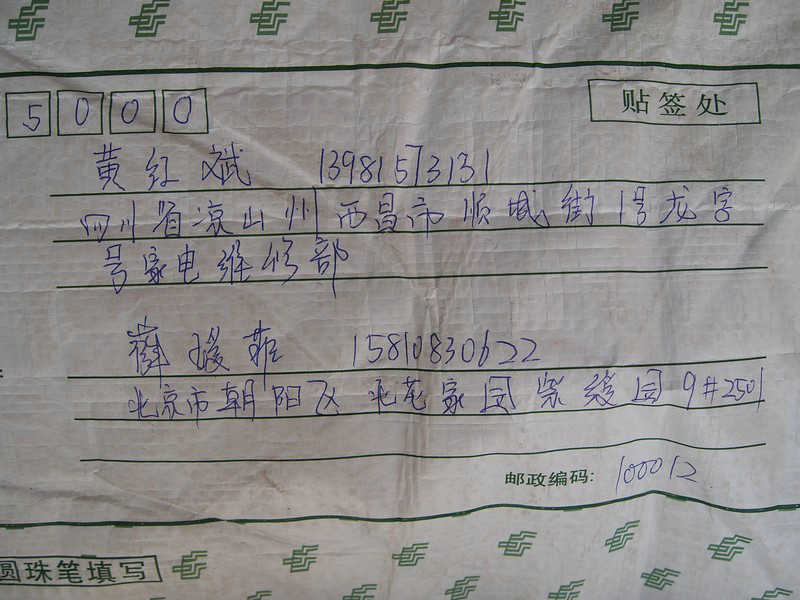 5000
贴签处
黄红斌 13981573131
四川省凉山州西昌市顺城街1号龙字
号家电维修部
薛瑗菲 15810830622
北京市朝阳区北苑家园紫绶园9#2501
邮政编码: 100012
圆珠笔填写